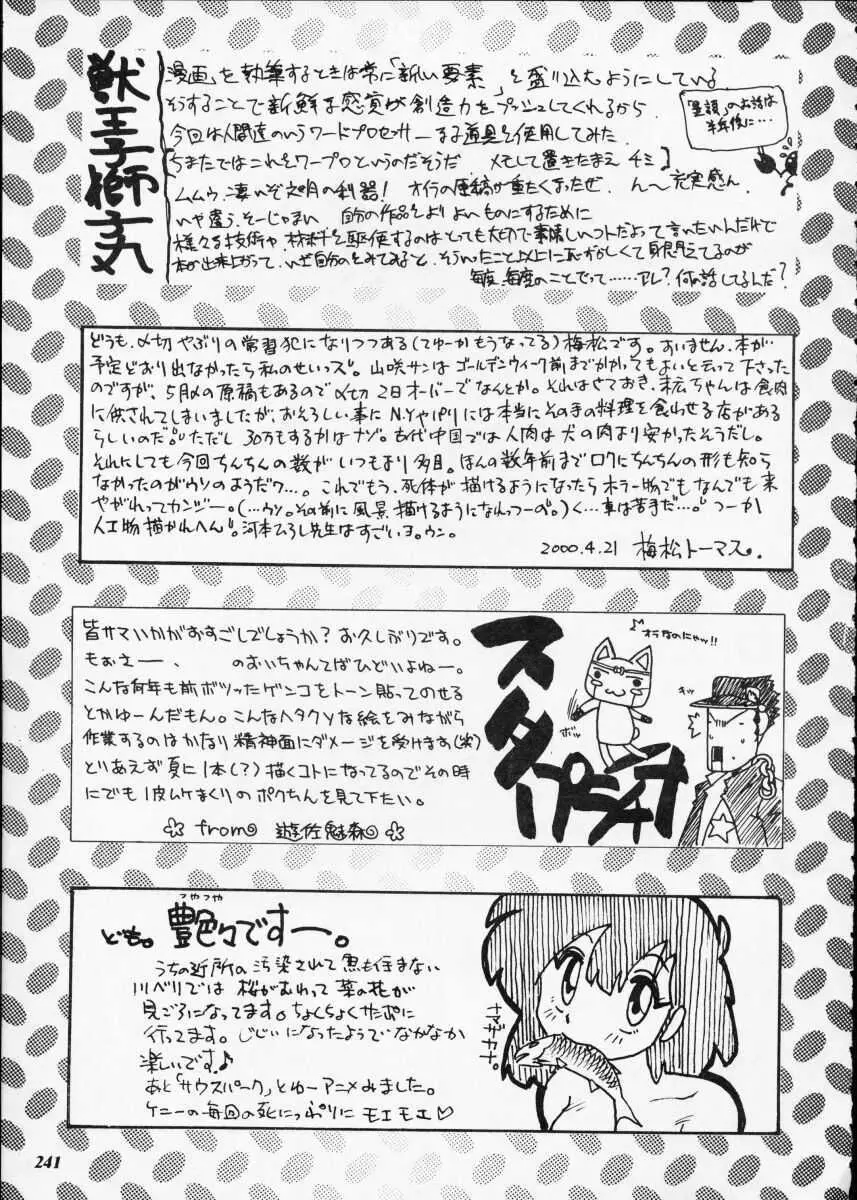 獣王子獅子丸
漫画を執筆するときは常に「新しい要素」を盛り込むようにしている
そうすることで新鮮な感覚が創造力をプッシュしてくれるから.
今回は人間達のいうワードプロセッサーなる道具を使用してみた.
ちまたではこれをワープロというのだそうだ メモして置きたまえ チミ]
ムムウ、凄いぞ文明の利器! オイラの原稿が重たくなったぜ. ん〜充実感ん.
いや違う、そーじゃない 自分の作品をよりよいものにするために
様々な技術や材料を駆使するのはとっても大切で素晴しいコトだよって言いたいんだけど
本が出来上がって、いざ自分のをみてみると、そういったこと以上に恥ずかしくて
毎度、毎度のことでって……アレ?何の話してるんだ?
のお話は
半年後に…
どうも、〆切やぶりの常習犯になりつつある(てゆーかもうなってる)梅松です。すいません、本が…
予定どおり出なかったら私のせいっス。山咲サンはゴールデンウィーク前までかかってもよいと云って下さった
のですが、5月〆の原稿もあるので〆切2日オーバーでなんとか。それはさておき、ちゃんは食肉
に供されてしまいましたが、おそろしい事にN.Yやパリには本当にそのまま料理を食わせる店がある
らしいのだ。ただし30万もするかはナゾ。古代中国では人肉は犬の肉より安かったそうだし。
それにしても今回ちんちんの数がいつもより多目。ほんの数年前までロクにちんちんの形も知ら
なかったのがウソのようだワ…。これでもう、死体が描けるようになったらホラー物でもなんでも来
やがれってカンジー。(…ウソ。その前に風景描けるようになれっつーの。)く…車は苦手だ…。つーか
人工物描かれへん。河本ひろし先生はすごいヨ。ウン。
2000.4.21 梅松トーマス。
皆サマいかがおすごしでしょうか?お久しぶりです。
もぉさー、 のおいちゃんてばひどいよねー。
こんな何年も前ボツったゲンコをトーン貼ってのせる
とかゆーんだもん。こんなヘタクソな絵をみながら
作業するのはかなり精神面にダメージを受けます(笑)
とりあえず夏に1本(?)描くコトになってるのでその時
にでも1皮ムケまくりのボクちんを見て下たい。
☆from◎ 遊佐魅森◎☆
♪オラなのにゃッ!!
ボッ
キッ
スタープラチナ
つやつや
ども。艶々ですー。
うちの近所の汚染されて魚も住まない
川べりでは 桜がおわって菜の花が
見ごろになってます。ちょくちょくサンポに
行ってます。じじいになったようでなかなか
楽しいです♪
あと「サウスパーク」とゆーアニメみました。
ケニーの毎回の死にっぷりに モエモエ♡
ナマザカナ。
241